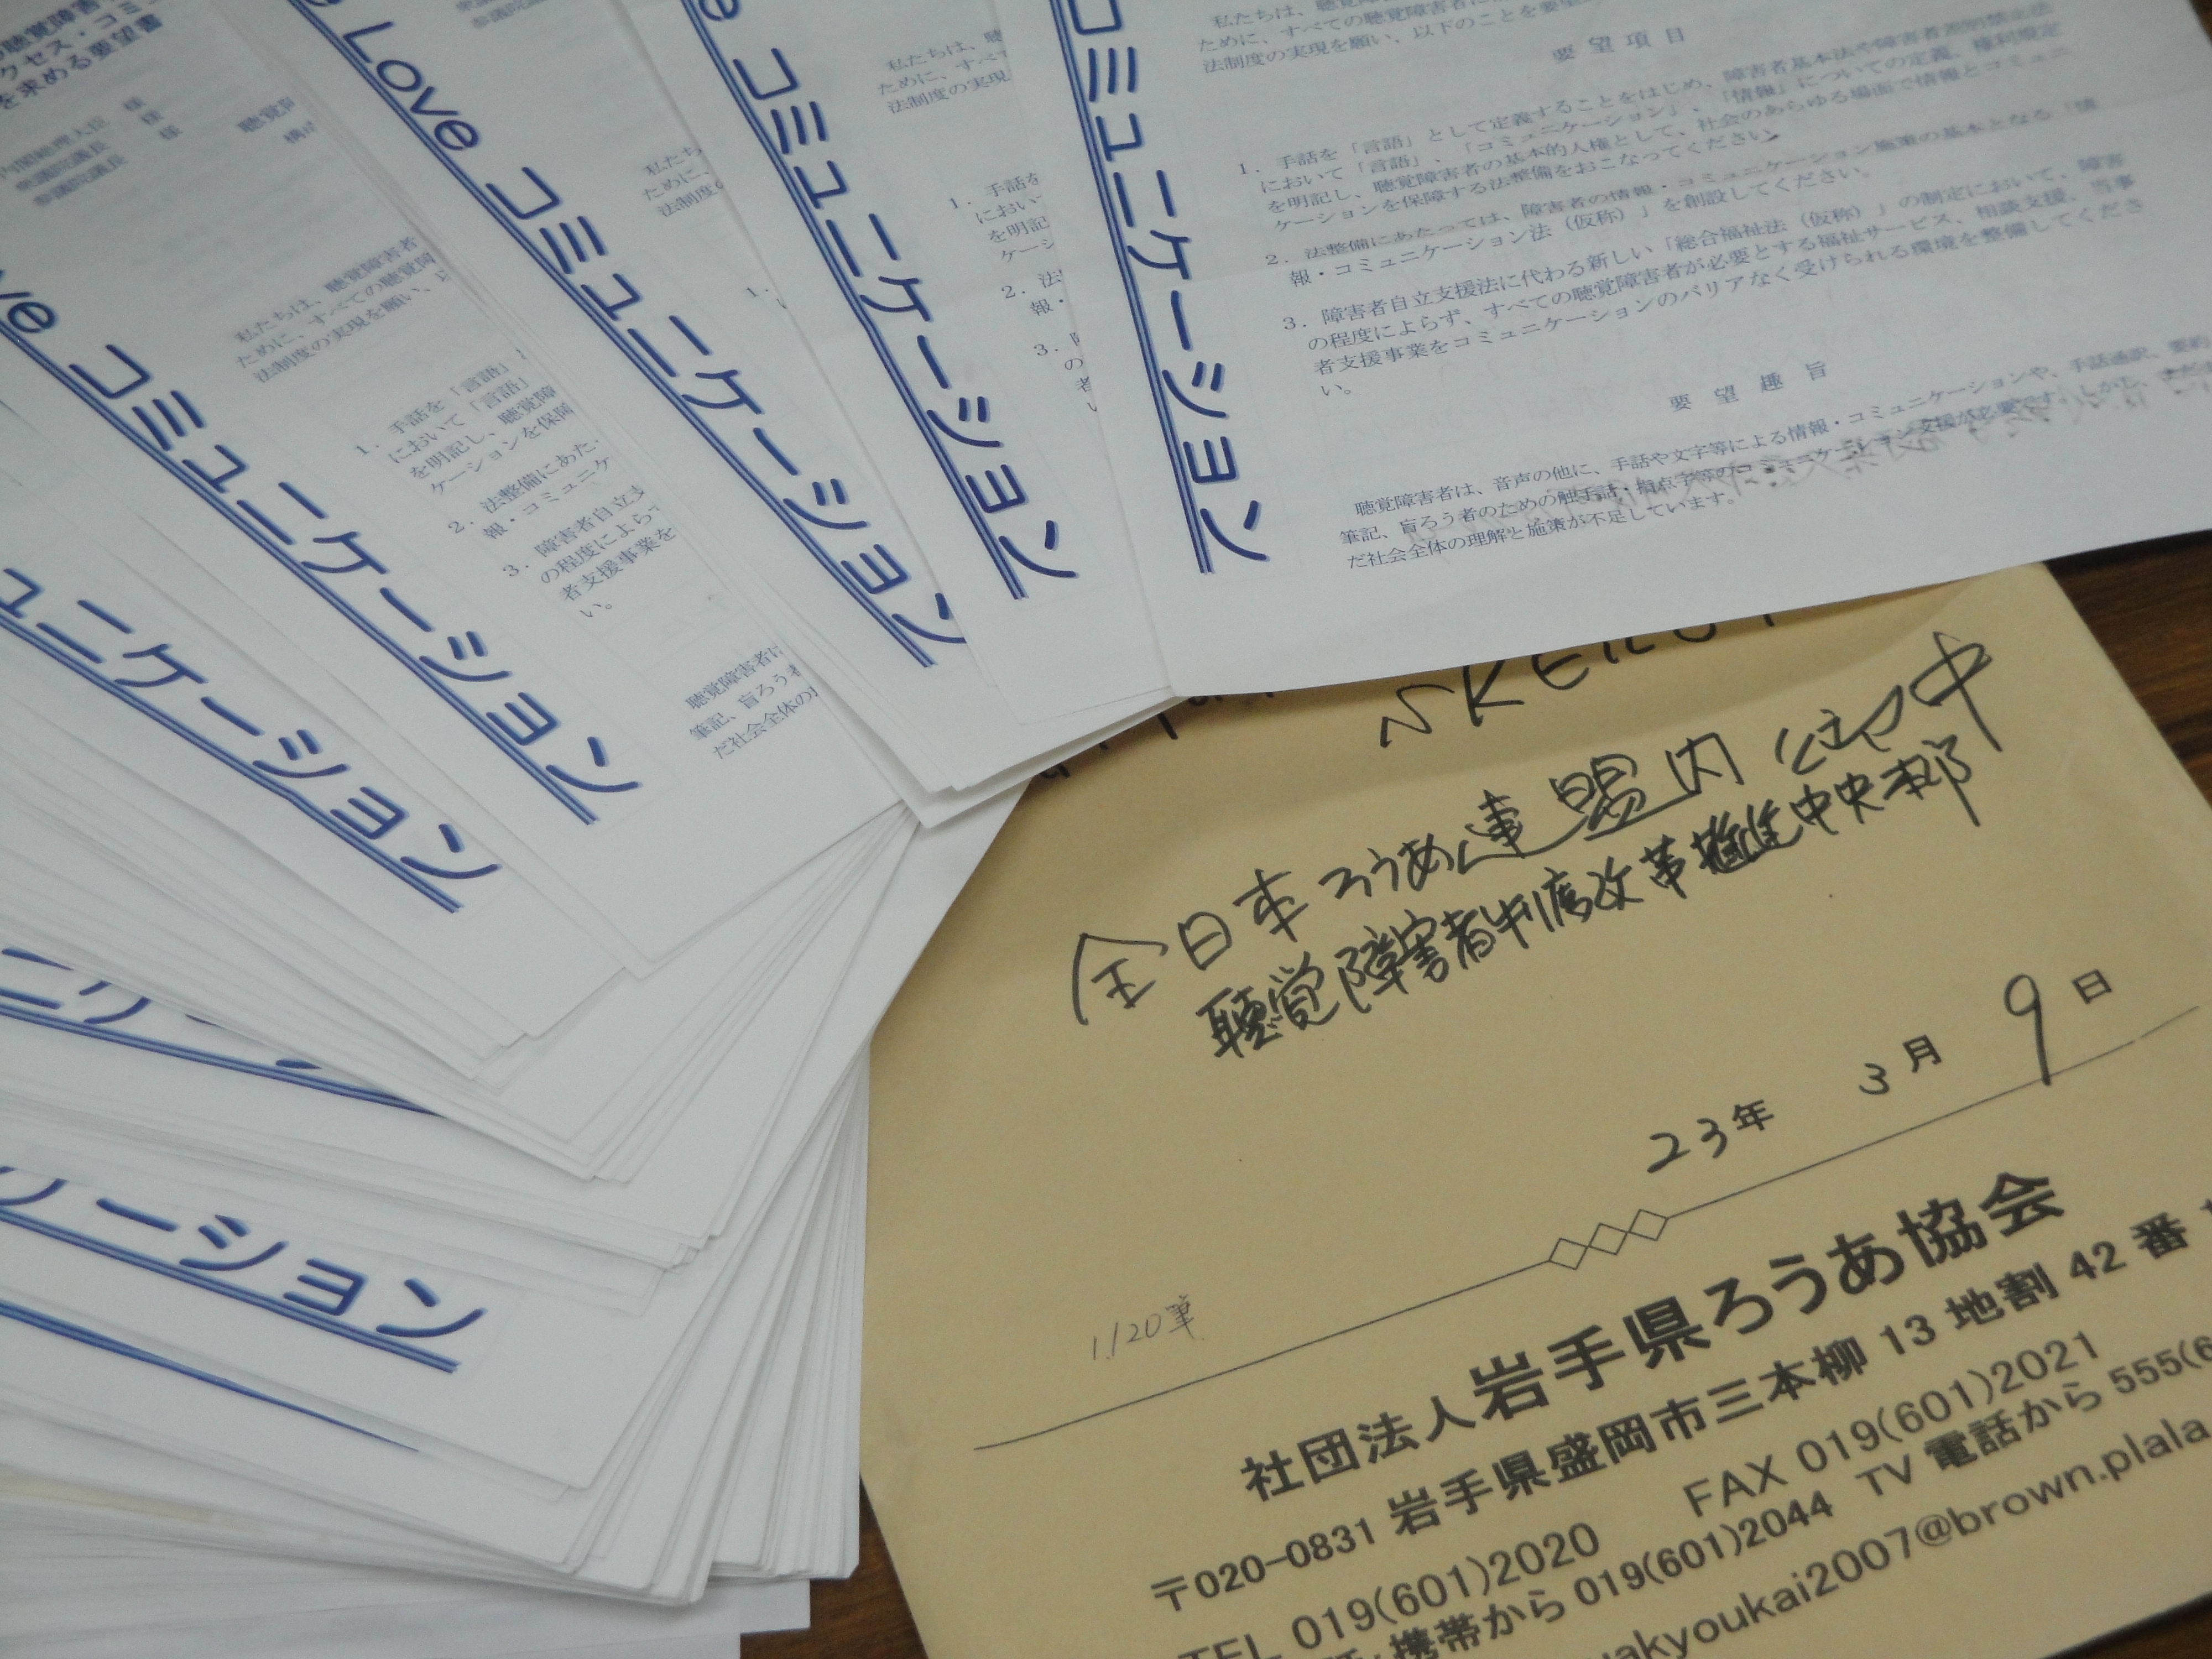 聴覚障害
クセス・コミュ
を求める要望書
内閣総理大臣 様
衆議院議長 様
参議院議長 様
私たちは、聴覚障害者
ために、すべての聴覚障
法制度の実現を願い、以
1. 手話を「言語」
において「言語」
を明記し、聴覚障
ケーションを保障
2. 法整備にあた
報・コミュニケ
3. 障害者自立支
の程度によら
者支援事業を
い。
筆記、盲ろう者
だ社会全体の
Love コミュニケーション
コミュニケーション
コミュニケーション
コミュニケーション
ュニケーション
ケーション
私たちは、聴
ために、すべて
法制度の実現
法制度の実現を願い、以下のことを要望
要望項目
1. 手話を「言語」として定義することをはじめ、障害者基本法や障害者差別禁止法
において「言語」、「コミュニケーション」、「情報」についての定義、権利規定
を明記し、聴覚障害者の基本的人権として、社会のあらゆる場面で情報とコミュニ
ケーションを保障する法整備をおこなってください。
2. 法整備にあたっては、障害者の情報・コミュニケーション施策の基本となる「情
報・コミュニケーション法（仮称）」を創設してください。
3. 障害者自立支援法に代わる新しい「総合福祉法（仮称）」の制定において、障害
の程度によらず、すべての聴覚障害者が必要とする福祉サービス、相談支援、当事
者支援事業をコミュニケーションのバリアなく受けられる環境を整備してくださ
い。
要望趣旨
聴覚障害者は、音声の他に、手話や文字等による情報・コミュニケーションや、手話通訳、要約
筆記、盲ろう者のための触手話・指点字等のコミュニケーション支援が必要です。しかし、まだま
だ社会全体の理解と施策が不足しています。
全日本ろうあ連盟内 御中
聴覚障害者制度改革推進中央本部
23年 3月 9日
1,120筆
社団法人岩手県ろうあ協会
〒020-0831 岩手県盛岡市三本柳 13 地割 42 番
TEL 019(601)2020 FAX 019(601)2021
携帯から 019(601)2044 TV 電話から 555(6
akyoukai2007@brown.plala